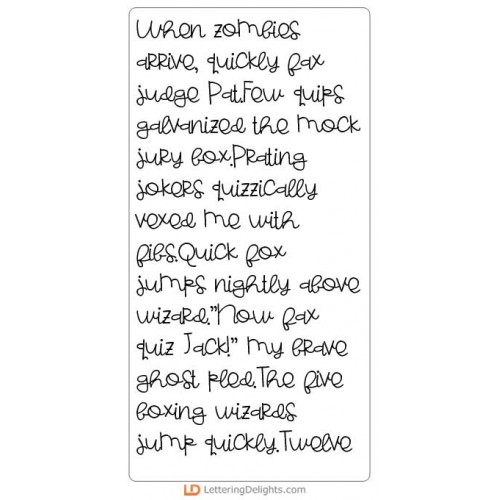 When zombies
arrive, quickly fax
judge Pat.Few quips
galvanized the mock
jury box.Prating
jokers quizzically
vexed me with
fibs.Quick fox
jumps nightly above
wizard.”Now fax
quiz Jack!” my brave
ghost pled.The five
boxing wizards
jump quickly.Twelve
LD LetteringDelights.com